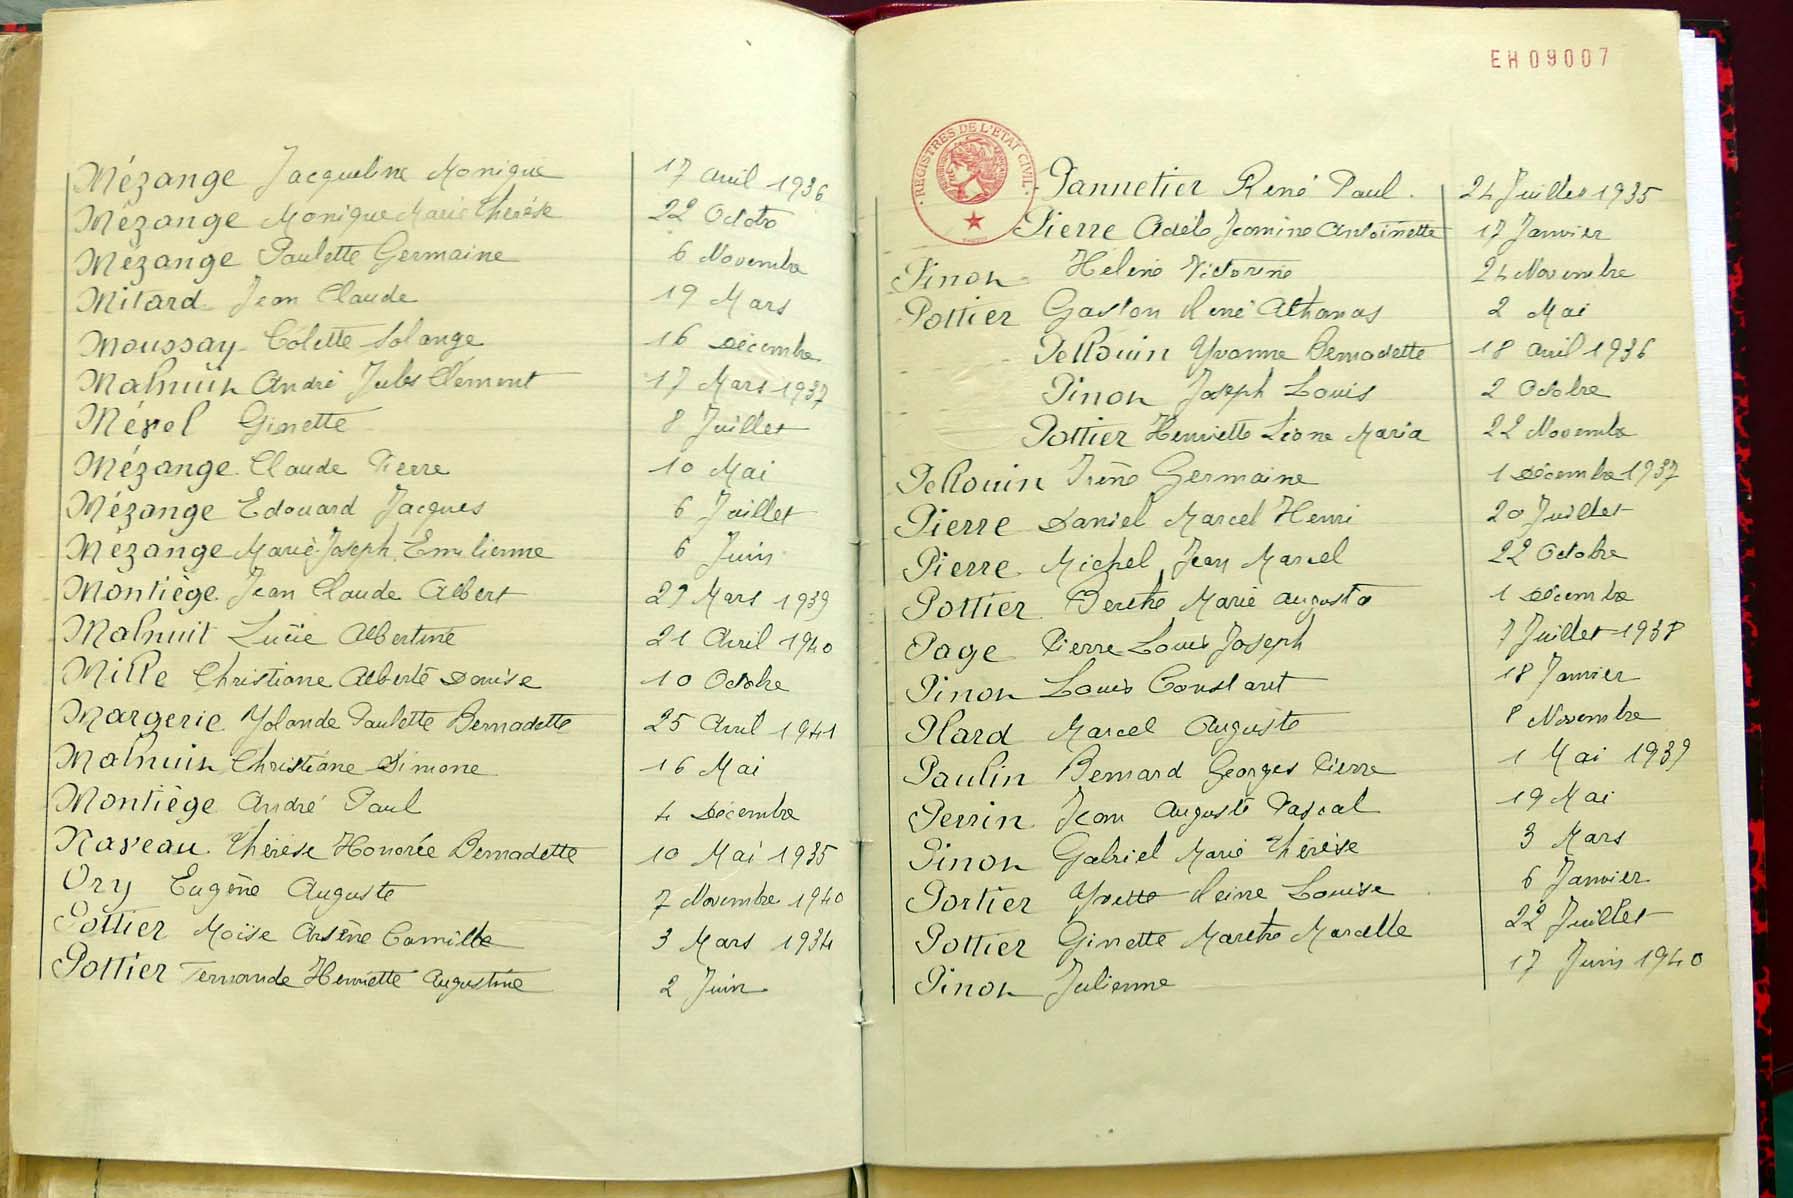 Mézange Jacqueline Monique 17 avril 1936
Mézange Monique Marie Thérèse 22 Octobre
Mézange Paulette Germaine 6 Novembre
Mitard Jean Claude 19 Mars
Moussay Colette Solange 16 Décembre
Malnuit André Jules Clément 17 Mars 1937
Mérel Ginette 8 Juillet
Mézange Claude Pierre 10 Mai
Mézange Edouard Jacques 6 Juillet
Mézange Marie-Joseph Emilienne 6 Juin
Montiège Jean Claude Albert 29 Mars 1939
Malnuit Lucie Albertine 21 Avril 1940
Mille Christiane Alberte Louise 10 Octobre
Margerie Yolande Paulette Bernadette 25 Avril 1941
Malnuit Christiane Simone 16 Mai
Montiège André Paul 4 Décembre
Naveau Thérèse Honorée Bernadette 10 Mai 1935
Ory Eugène Auguste 7 Novembre 1940
Pottier Moïse Arsène Camille 3 Mars 1934
Pottier Fernande Henriette Augustine 2 Juin
EH09007
REGISTRES DE L'ETAT CIVIL
Pannetier René Paul 24 Juillet 1935
Pierre Adèle Jeanine Antoinette 17 Janvier
Pinon Hélène Victorine 24 Novembre
Pottier Gaston René Athanas 2 Mai
Pellouin Yvonne Bernadette 18 avril 1936
Pinon Joseph Louis 2 Octobre
Pottier Henriette Léone Maria 22 Novembre
Pellouin Irène Germaine 1 Décembre 1937
Pierre Daniel Marcel Henri 20 Juillet
Pierre Michel Jean Marcel 22 Octobre
Pottier Berthe Marie Augusta 1 Décembre
Page Pierre Louis Joseph 7 Juillet 1938
Pinon Louis Constant 18 Janvier
Plard Marcel Auguste 8 Novembre
Paulin Bernard Georges Pierre 1 Mai 1939
Perrin Jean Auguste Pascal 19 Mai
Pinon Gabriel Marie Thérèse 3 Mars
Portier Yvette Reine Louise 6 Janvier
Pottier Ginette Marthe Marcelle 22 Juillet
Pinon Julienne 17 Juin 1940